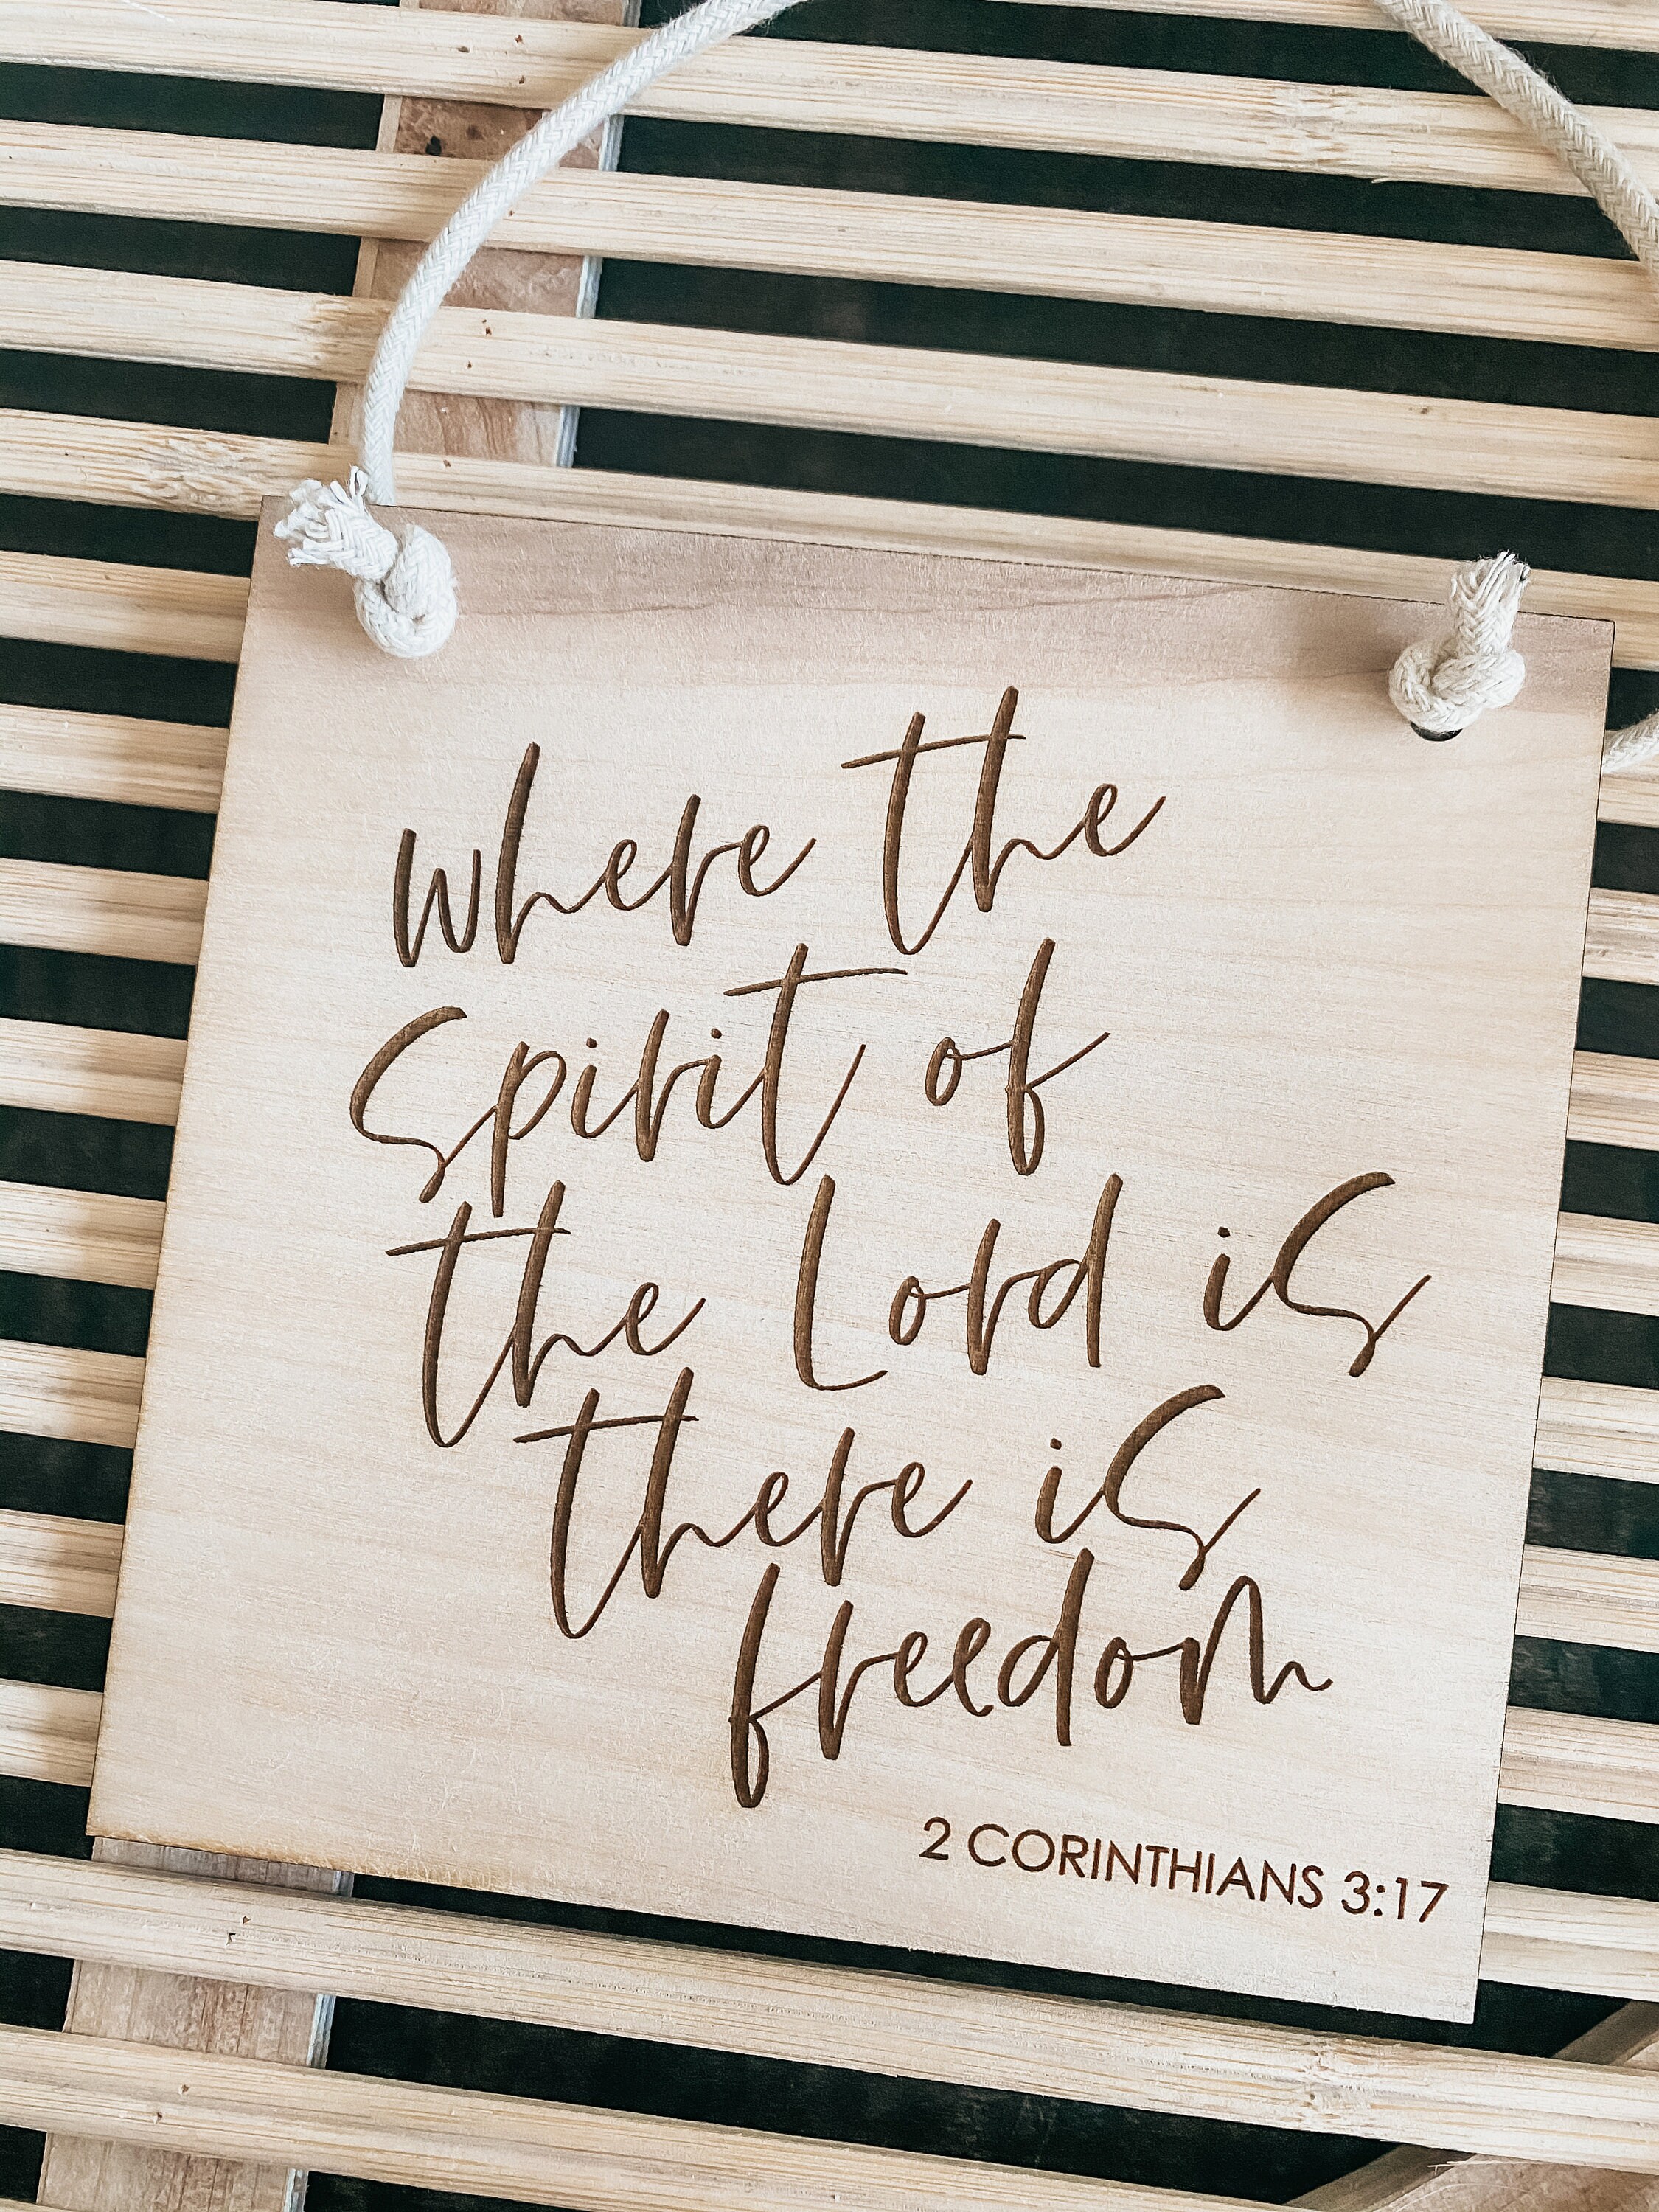 where the
Spirit of
the Lord is
there is
freedom
2 CORINTHIANS 3:17